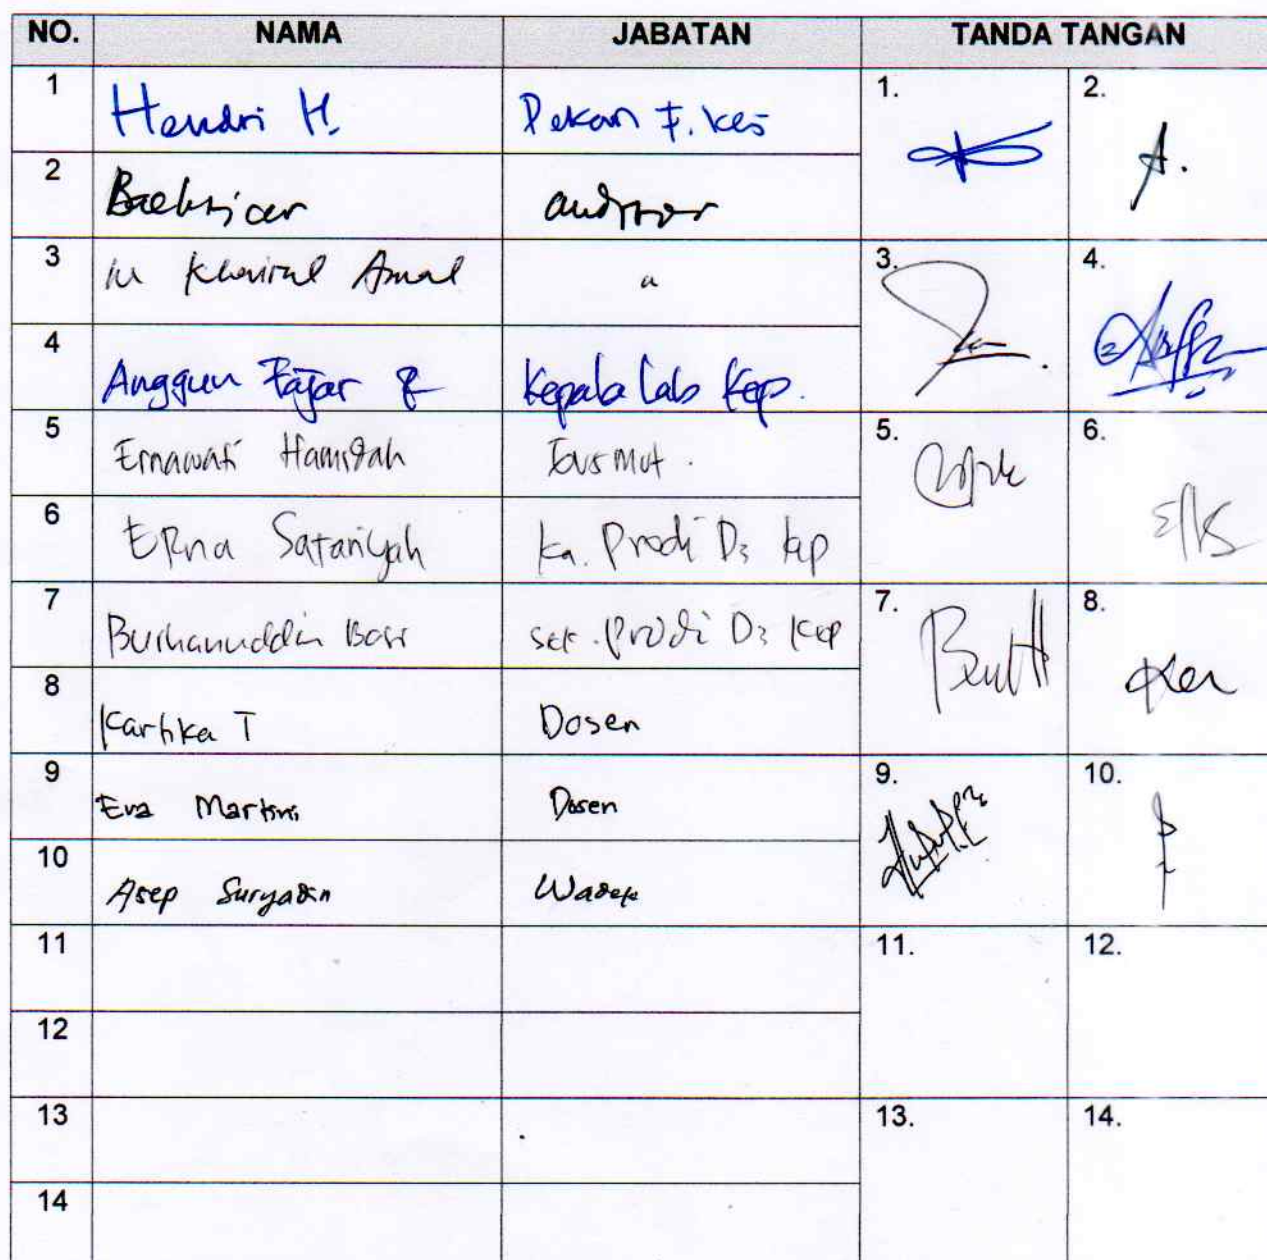 NO. NAMA JABATAN TANDA TANGAN
1 Hendri H. Dekan F. kes 1. 2.
2
3 M Khairul Amal " 3. 4.
4 Anggun Fajar Kepala lab Kep.
5 Ernawati Hamidah 5. 6.
6 Erna Safariyah Ka. Prodi D3 kep
7 Burhanuddin Basri sek. Prodi D3 Kep 7. 8.
8 Kartika T Dosen
9 Eva Martini Dosen 9. 10.
10 Asep Suryadin Wadek
11 11. 12.
12
13 13. 14.
14